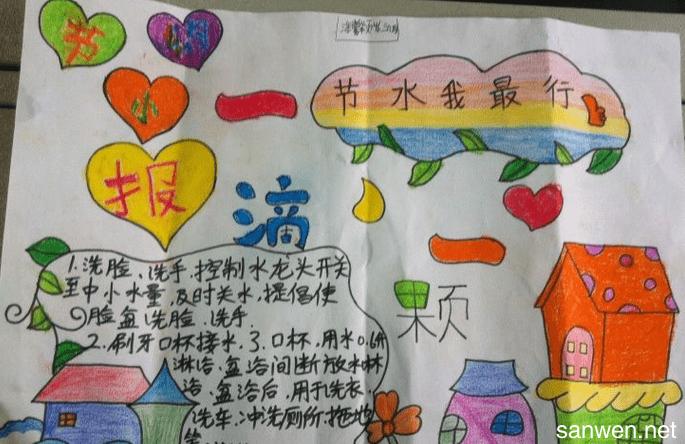 节
小
报
节水我最行
一
滴
一
颗
1.洗脸、洗手、控制水龙头开关
至中小水量,及时关水,提倡使
脸盆洗脸、洗手
2、刷牙口杯接水、3、口杯,用水0.6升
淋浴、盆浴间断放水淋
浴、盆浴后,用于洗衣、
洗车、冲洗厕所、拖地
等
sanwen.net